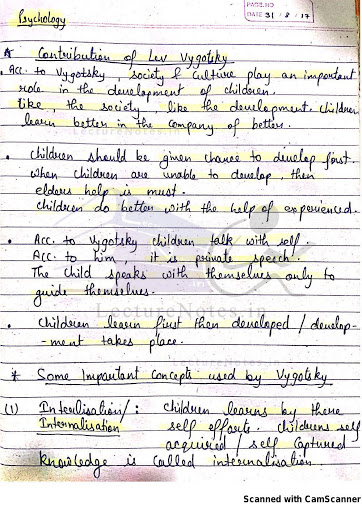 PAGE NO.
Psychology
DATE 31/8/17
* Contribution of Lev Vygotsky
• Acc. to Vygotsky, society & culture play an important
role in the development of children.
like, the society, like the development. Children
learn better in the company of better.
• Children should be given chance to develop first.
when children are unable to develop, then
elders help is must.
Children do better with the help of experienced.
• Acc. to Vygotsky children talk with self.
Acc. to him, it is 'private speech'.
The child speaks with themselves only to
guide themselves.
LectureNotes.in
• Children learn first then developed / develop-
-ment takes place.
* Some Important Concepts used by Vygotsky
(1) Interilisation/: Children learns by there
Internalisation self efforts. childrens self
acquired / self captured
knowledge is called internalisation
Scanned with CamScanner